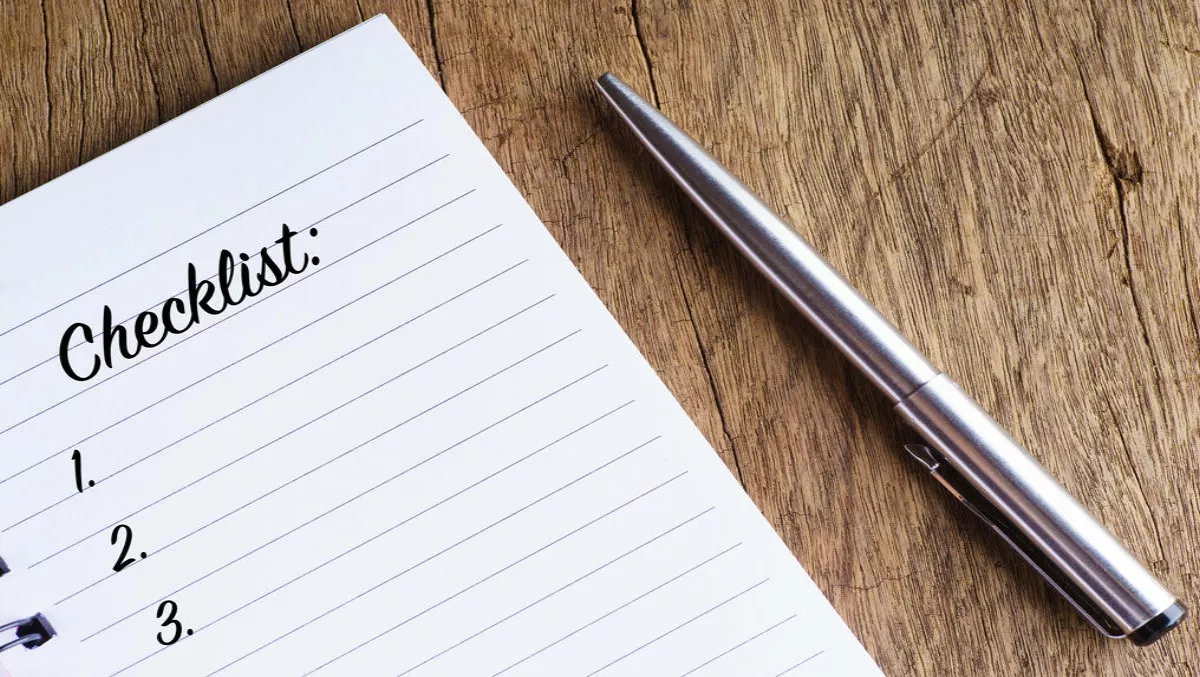 Checklist:
1.
2.
3.